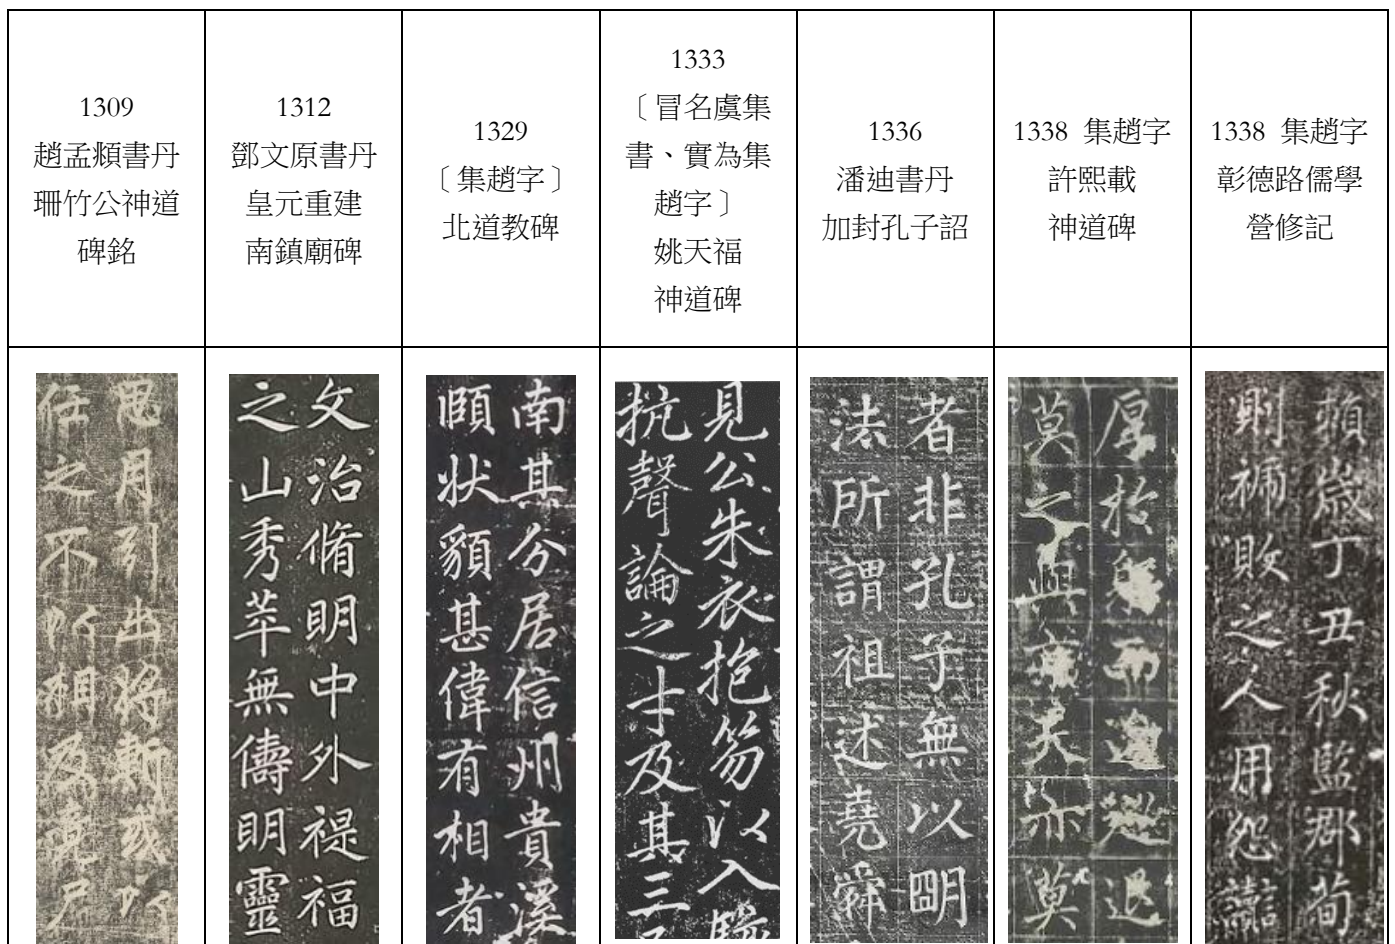 1309
趙孟頫書丹
珊竹公神道
碑銘
1312
鄧文原書丹
皇元重建
南鎮廟碑
1329
〔集趙字〕
北道教碑
1333
〔冒名虞集
書、實為集
趙字〕
姚天福
神道碑
1336
潘迪書丹
加封孔子詔
1338 集趙字
許熙載
神道碑
1338 集趙字
彰德路儒學
營修記
思月引出將斬或
任之不所相及
文治脩明中外禔福
之山秀苹無儔明靈
南其分居信州貴溪
頤狀額甚偉有相者
見公朱衣抱笏以入
抗聲論之士及其三
者非孔子無以明
法所謂祖述堯舜
厚於而邊退
莫之與亦莫
歲丁丑秋監郡荀
則禰敗之人用怨讟